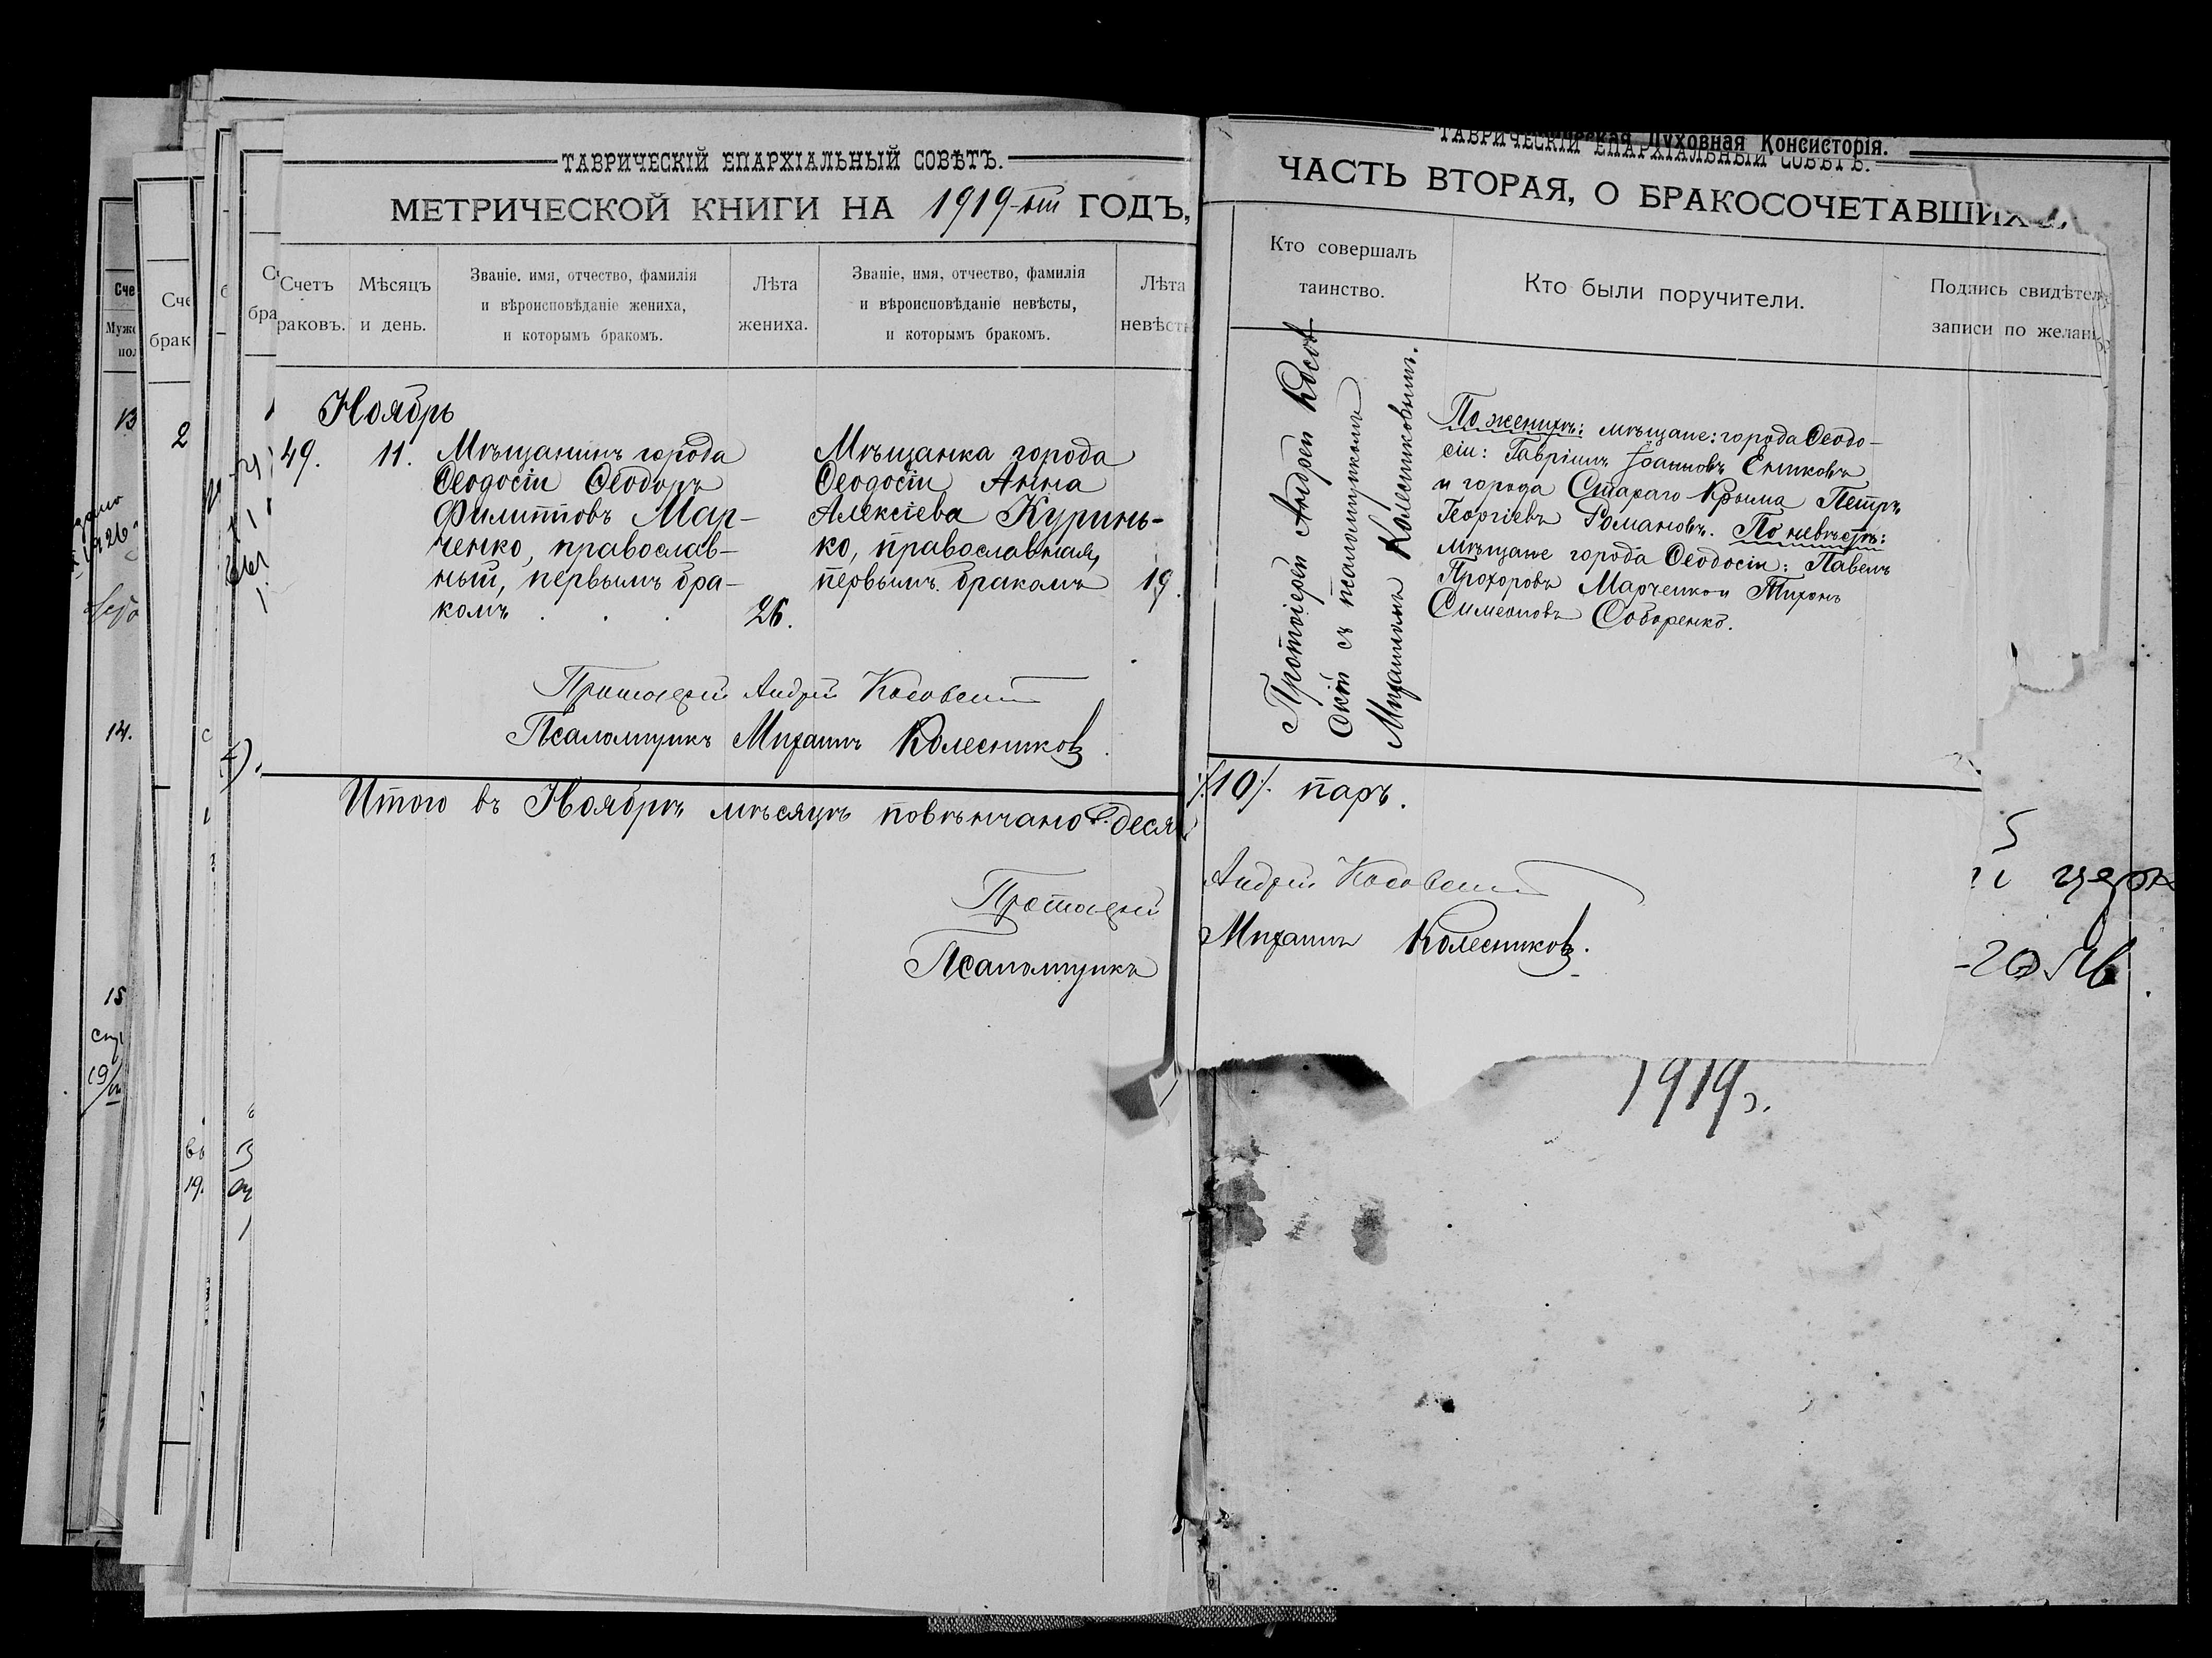 ТАВРИЧЕСКІЙ ЕПАРХІАЛЬНЫЙ СОВѢТЪ.
МЕТРИЧЕСКОЙ КНИГИ НА 1919-ый ГОДЪ,
Счетъ
раковъ.
Мѣсяцъ
и день.
Званіе, имя, отчество, фамилія
и вѣроисповѣданіе жениха,
и которымъ бракомъ.
Лѣта
жениха.
Званіе, имя, отчество, фамилія
и вѣроисповѣданіе невѣсты,
и которымъ бракомъ.
Лѣта
невѣст
Ноябрь
49. 11.
Мѣщанинъ города
Ѳеодосіи Ѳеодоръ
Филипповъ Мар-
ченко, православ-
ный, первымъ бра-
комъ . . . 26.
Мѣщанка города
Ѳеодосіи Анна
Алексіева Куринь-
ко, православная,
первымъ бракомъ 19.
Протоіерей Андрей Косовскій
Псаломщикъ Михаилъ Колесниковъ.
Итого въ Ноябрѣ мѣсяцѣ повѣнчано деся
Протоіерей
Псаломщикъ
Духовная Консисторія.
ТАВРИЧЕСКІЙ ЕПАРХІАЛЬНЫЙ СОВѢТЪ.
ЧАСТЬ ВТОРАЯ, О БРАКОСОЧЕТАВШИХ
Кто совершалъ
таинство.
Кто были поручители.
Подпись свидѣтел
записи по желан
Протоіерей Андрей Косов-
скій съ псаломщикомъ
Михаиломъ Колесниковымъ.
По женихѣ: мѣщане: города Ѳеодо-
сіи: Гавріилъ Іоанновъ Ениковъ
и города Стараго Крыма Петръ
Георгіевъ Романовъ. По невѣстѣ:
мѣщане города Ѳеодосіи: Павелъ
Прохоровъ Марченко и Тихонъ
Симеоновъ Соборенко.
/10/. паръ.
Андрей Косовскій
Михаилъ Колесниковъ.
церк
1919г.
Сче
Муж
пол
13
14.
15
Сче
брак
2
бра
1926